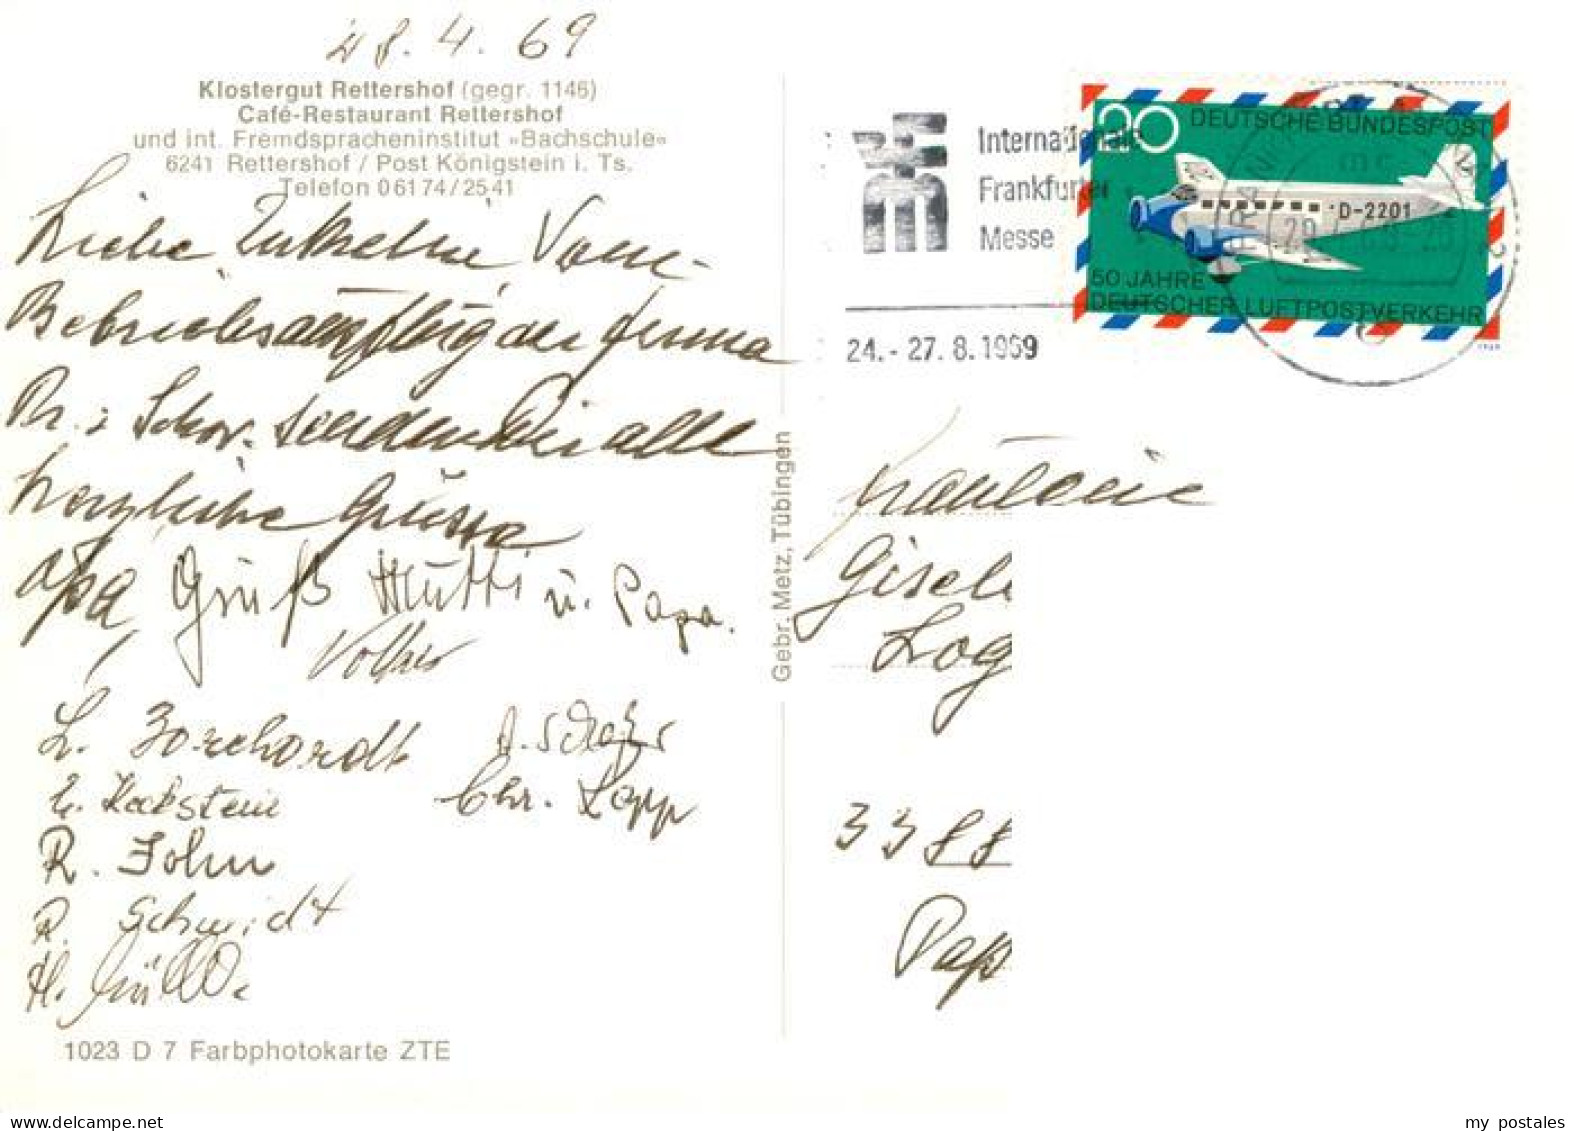 28.4.69
Klostergut Rettershof (gegr. 1146)
Café-Restaurant Rettershof
und int. Fremdspracheninstitut »Bachschule«
6241 Rettershof / Post Königstein i. Ts.
Telefon 06174/2541
Liebe Vom
Betriebsausflug der Firma
senden Dir alle
herzliche Grüsse
Opa, Gruß Mutti u. Papa.
Volker
L. Borchardt
Chr. Lopp
R. John
R. Schmidt
H. Müller
1023 D 7 Farbphotokarte ZTE
Gebr. Metz, Tübingen
Internationale
Frankfurter
Messe
24.-27.8.1969
20 DEUTSCHE BUNDESPOST
D-2201
50 JAHRE
DEUTSCHER LUFTPOSTVERKEHR
1969
Fräulein
Gisel
Log
3388
Paß
my postales